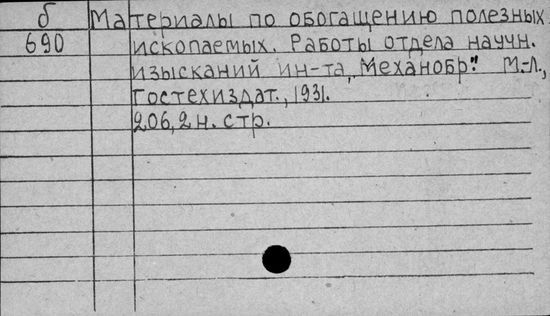 б Материалы по обогащению полезных
690 ископаемых. Работы отдела научн.
изысканий ин-та „Механобр". М.-Л.,
Гостехиздат., 1931.
206, 2 н. стр.